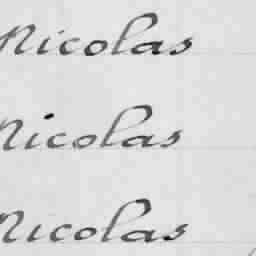 Nicolas
Nicolas
Nicolas